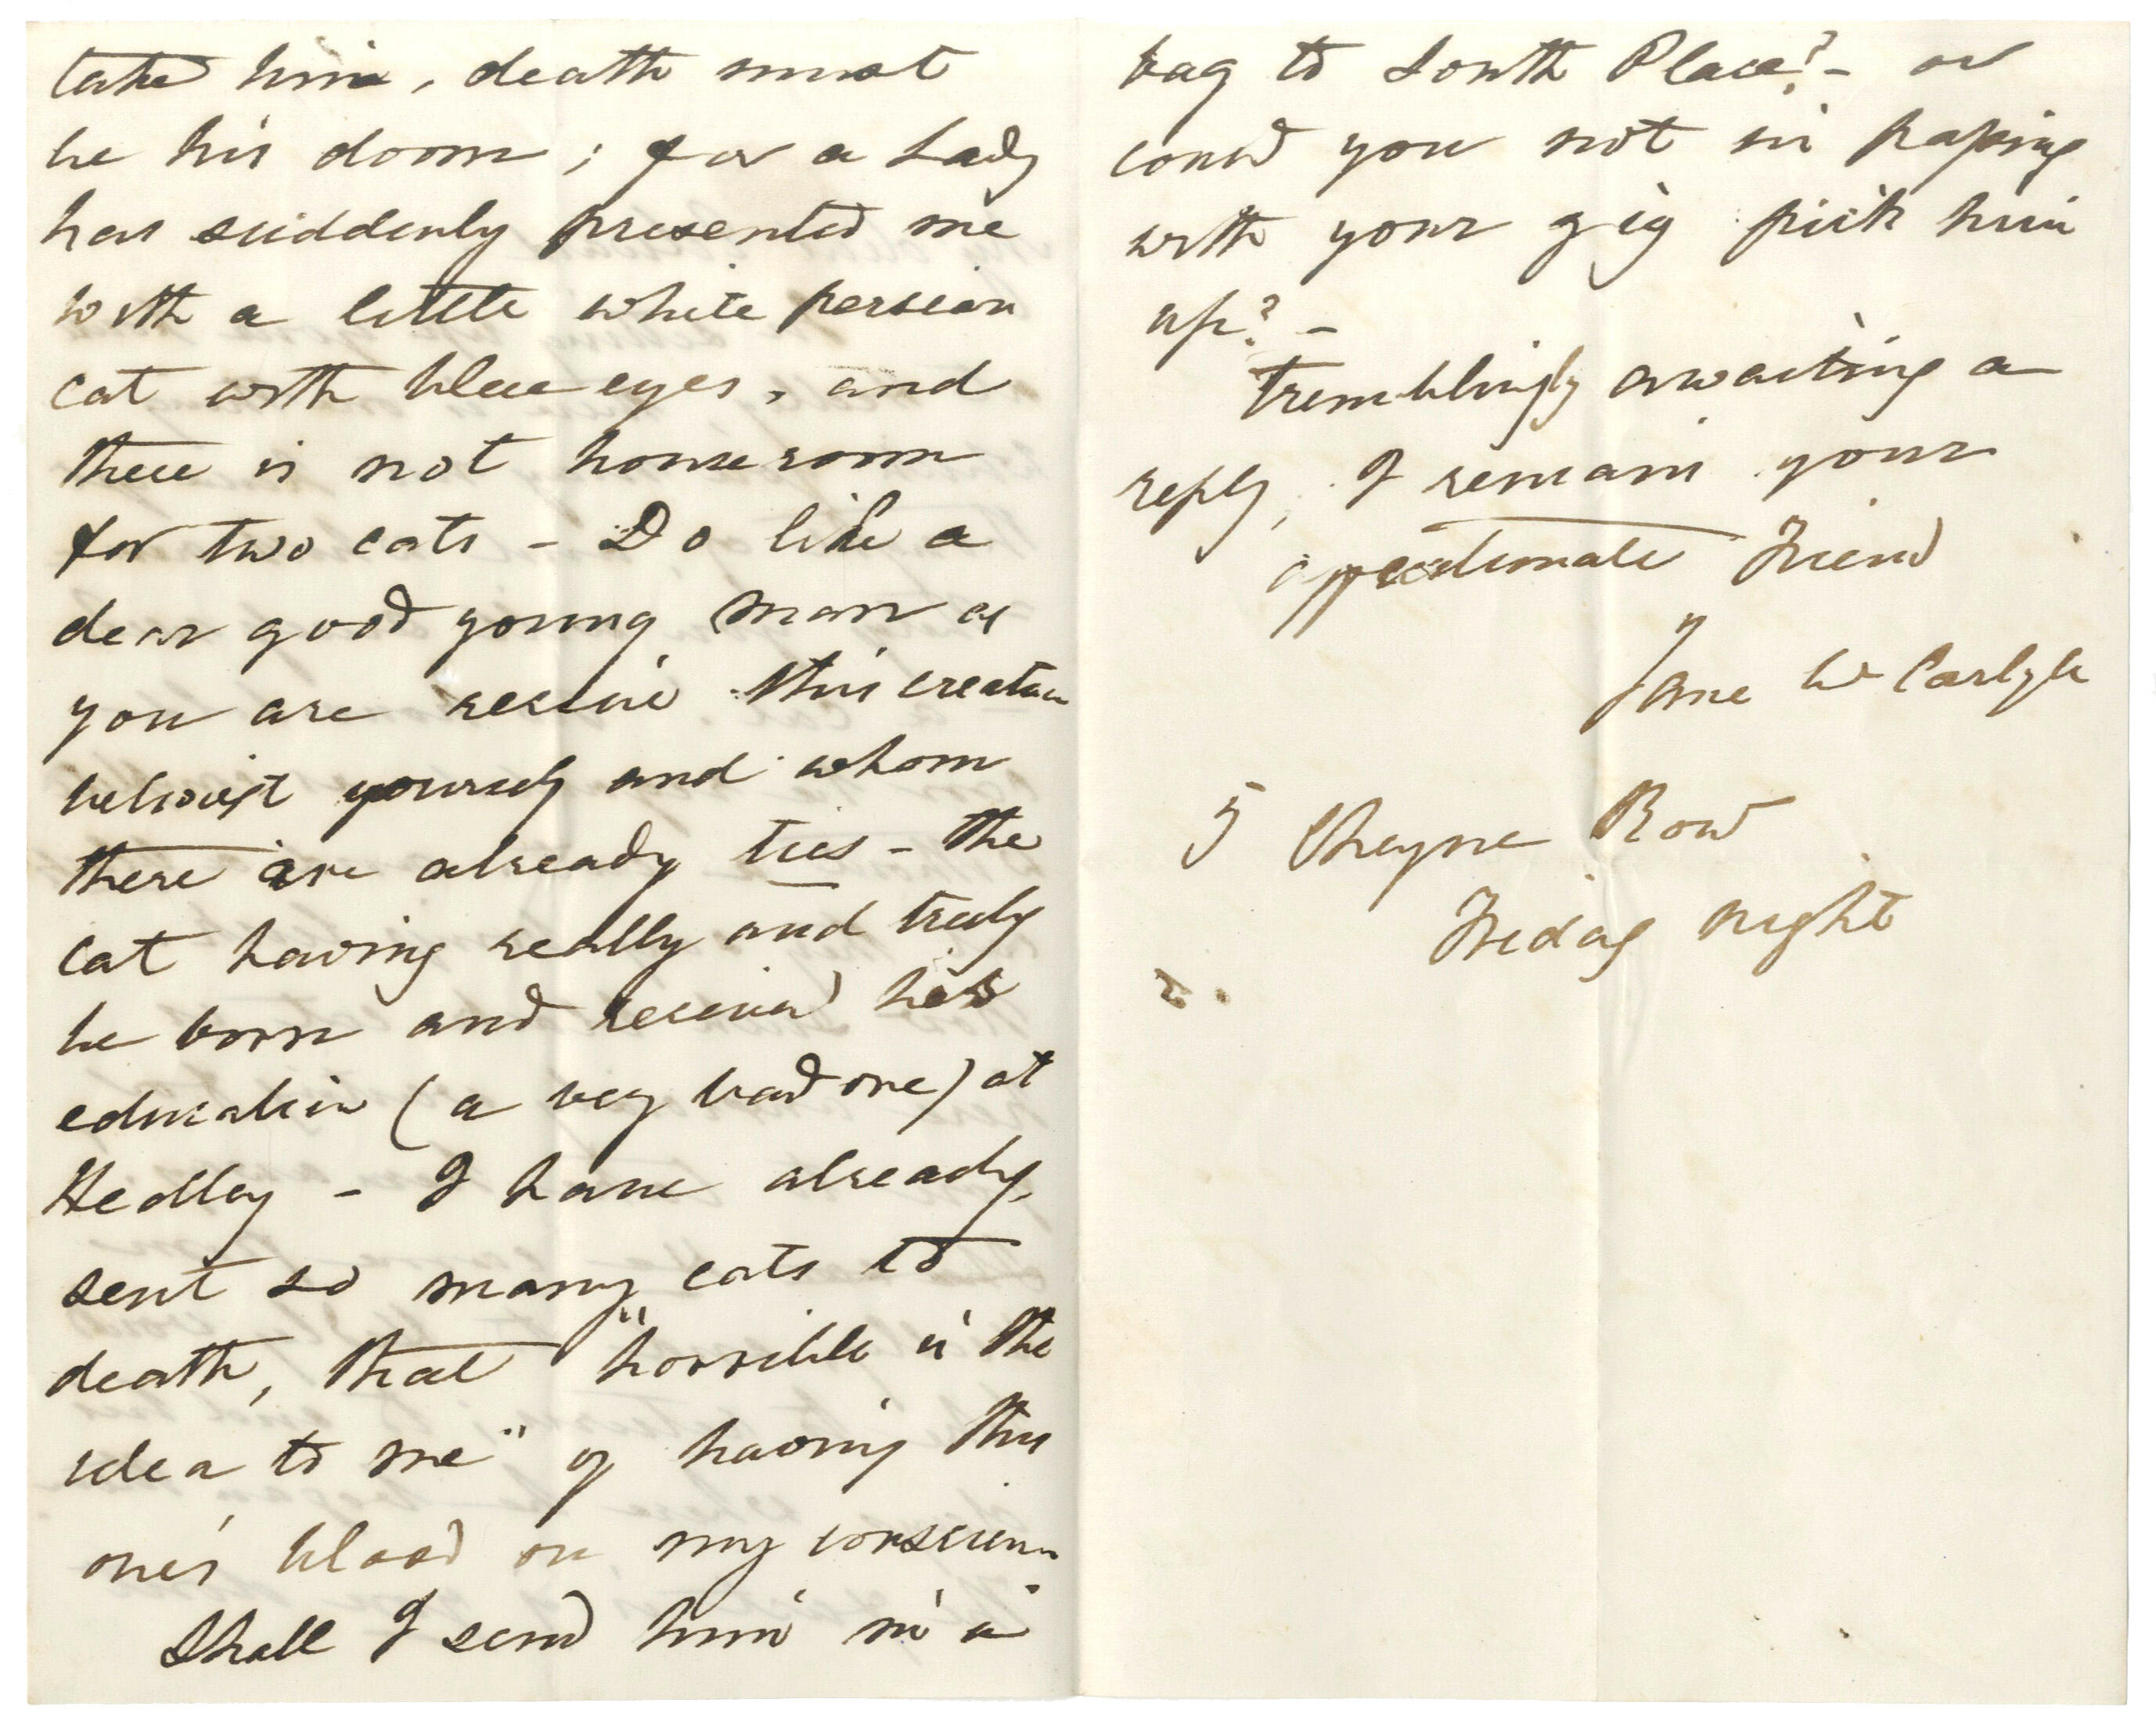 take him, death must
be his doom; for a Lady
has suddenly presented me
with a little white persian
cat with blue eyes, and
there is not houseroom
for two cats – Do like a
dear good young man as
you are rescue this creature
betwixt yourself and whom
there are already ties – the
cat having really and truly
be born and received his
education (a very bad one) at
Hedley – I have already
sent so many cats to
death, that "horrible is the
idea to me" of having this
one's blood on my conscience
Shall I send him in a
bag to South Place? – or
could you not in passing
with your gig pick him
up? –
Tremblingly awaiting a
reply, I remain your
affectionate Friend
Jane W Carlyle
5 Cheyne Row
Friday night